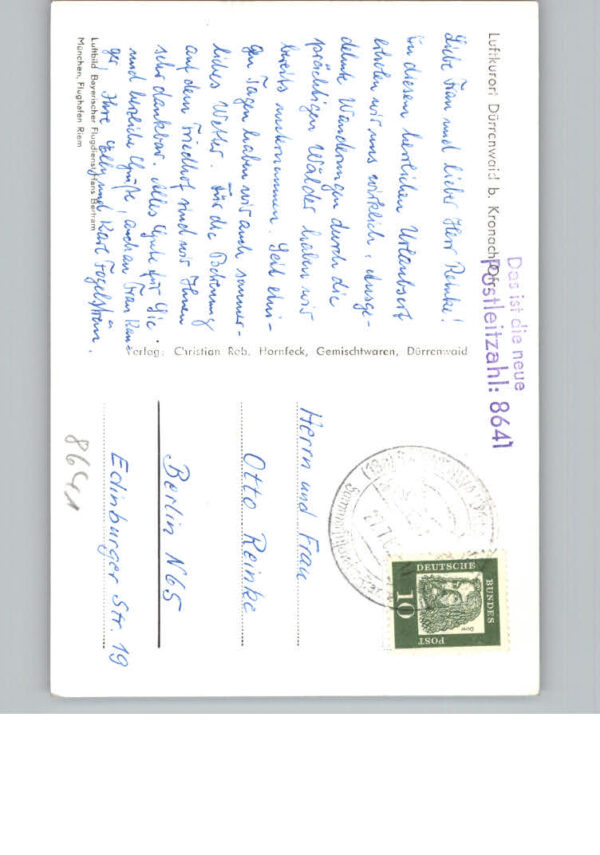 Luftkurort Dürrenwaid b. Kronach
Das ist die neue
Postleitzahl: 8641
Liebe Frau und lieber Herr Reinke!
In diesem herrlichen Urlaubsort
erholen wir uns wirklich. Ausge-
dehnte Wanderungen durch die
prächtigen Wälder haben wir
bereits unternommen. Seit eini-
gen Tagen haben wir auch sommer-
liches Wetter. Für die Betreuung
auf dem Friedhof sind wir Ihnen
sehr dankbar. Alles Gute für Sie
und herzliche Grüße, auch an Frau
Ihre Elly und Karl
Luftbild Bayerischer Flugdienst Hans Bertram
München, Flughafen Riem
Verlag: Christian Rob. Hornfeck, Gemischtwaren, Dürrenwaid
DEUTSCHE
BUNDES
POST
10
Herrn und Frau
Otto Reinke
Berlin N65
Edinburger Str. 19
8641